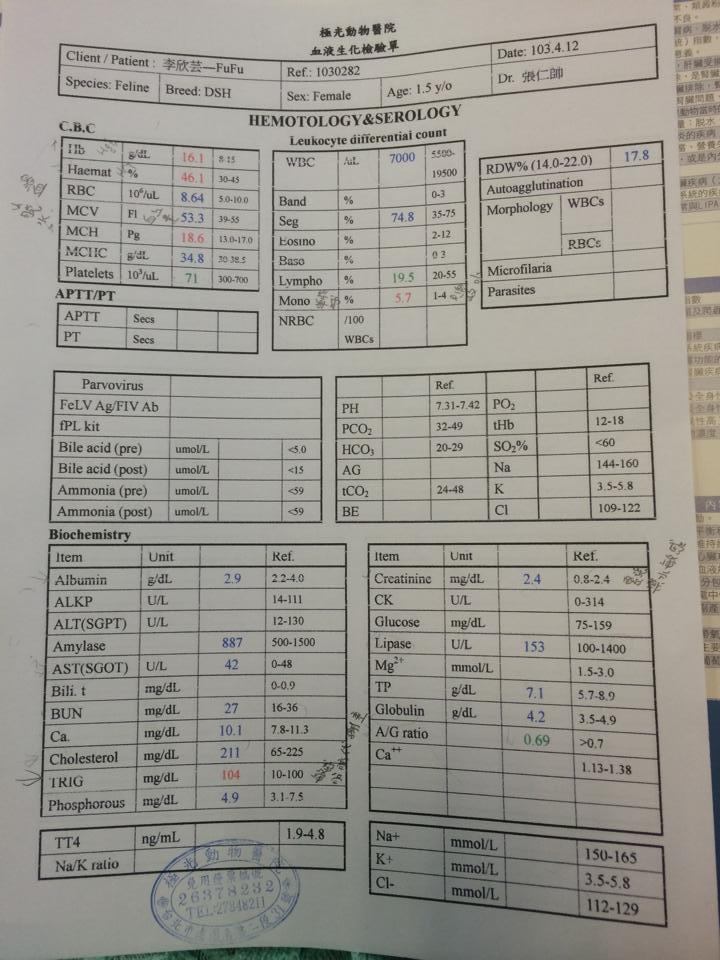 極光動物醫院
血液生化檢驗單
Client / Patient : 李欣芸—FuFu Ref.: 1030282 Date: 103.4.12
Species: Feline Breed: DSH Sex: Female Age: 1.5 y/o Dr. 張仁帥
HEMOTOLOGY&SEROLOGY
C.B.C
Hb g/dL 16.1 8-15
Haemat % 46.1 30-45
RBC 10⁶/uL 8.64 5.0-10.0
MCV Fl 53.3 39-55
MCH Pg 18.6 13.0-17.0
MCHC g/dL 34.8 30-38.5
Platelets 10³/uL 71 300-700
APTT/PT
APTT Secs
PT Secs
Leukocyte differential count
WBC /uL 7000 5500-19500
Band % 0-3
Seg % 74.8 35-75
Eosino % 2-12
Baso % 0-3
Lympho % 19.5 20-55
Mono % 5.7 1-4
NRBC /100 WBCs
RDW% (14.0-22.0) 17.8
Autoagglutination
Morphology WBCs
RBCs
Microfilaria
Parasites
Parvovirus
FeLV Ag/FIV Ab
fPL kit
Bile acid (pre) umol/L <5.0
Bile acid (post) umol/L <15
Ammonia (pre) umol/L <59
Ammonia (post) umol/L <59
Ref. Ref.
PH 7.31-7.42 PO₂
PCO₂ 32-49 tHb 12-18
HCO₃ 20-29 SO₂% <60
AG Na 144-160
tCO₂ 24-48 K 3.5-5.8
BE Cl 109-122
Biochemistry
Item Unit Ref.
Albumin g/dL 2.9 2.2-4.0
ALKP U/L 14-111
ALT(SGPT) U/L 12-130
Amylase 887 500-1500
AST(SGOT) U/L 42 0-48
Bili. t mg/dL 0-0.9
BUN mg/dL 27 16-36
Ca. mg/dL 10.1 7.8-11.3
Cholesterol mg/dL 211 65-225
TRIG mg/dL 104 10-100
Phosphorous mg/dL 4.9 3.1-7.5
TT4 ng/mL 1.9-4.8
Na/K ratio
Item Unit Ref.
Creatinine mg/dL 2.4 0.8-2.4
CK U/L 0-314
Glucose mg/dL 75-159
Lipase U/L 153 100-1400
Mg²⁺ mmol/L 1.5-3.0
TP g/dL 7.1 5.7-8.9
Globulin g/dL 4.2 3.5-4.9
A/G ratio 0.69 >0.7
Ca⁺⁺ 1.13-1.38
Na+ mmol/L 150-165
K+ mmol/L 3.5-5.8
Cl- mmol/L 112-129
極光動物醫院
免用發票
26378232
TEL:27848211